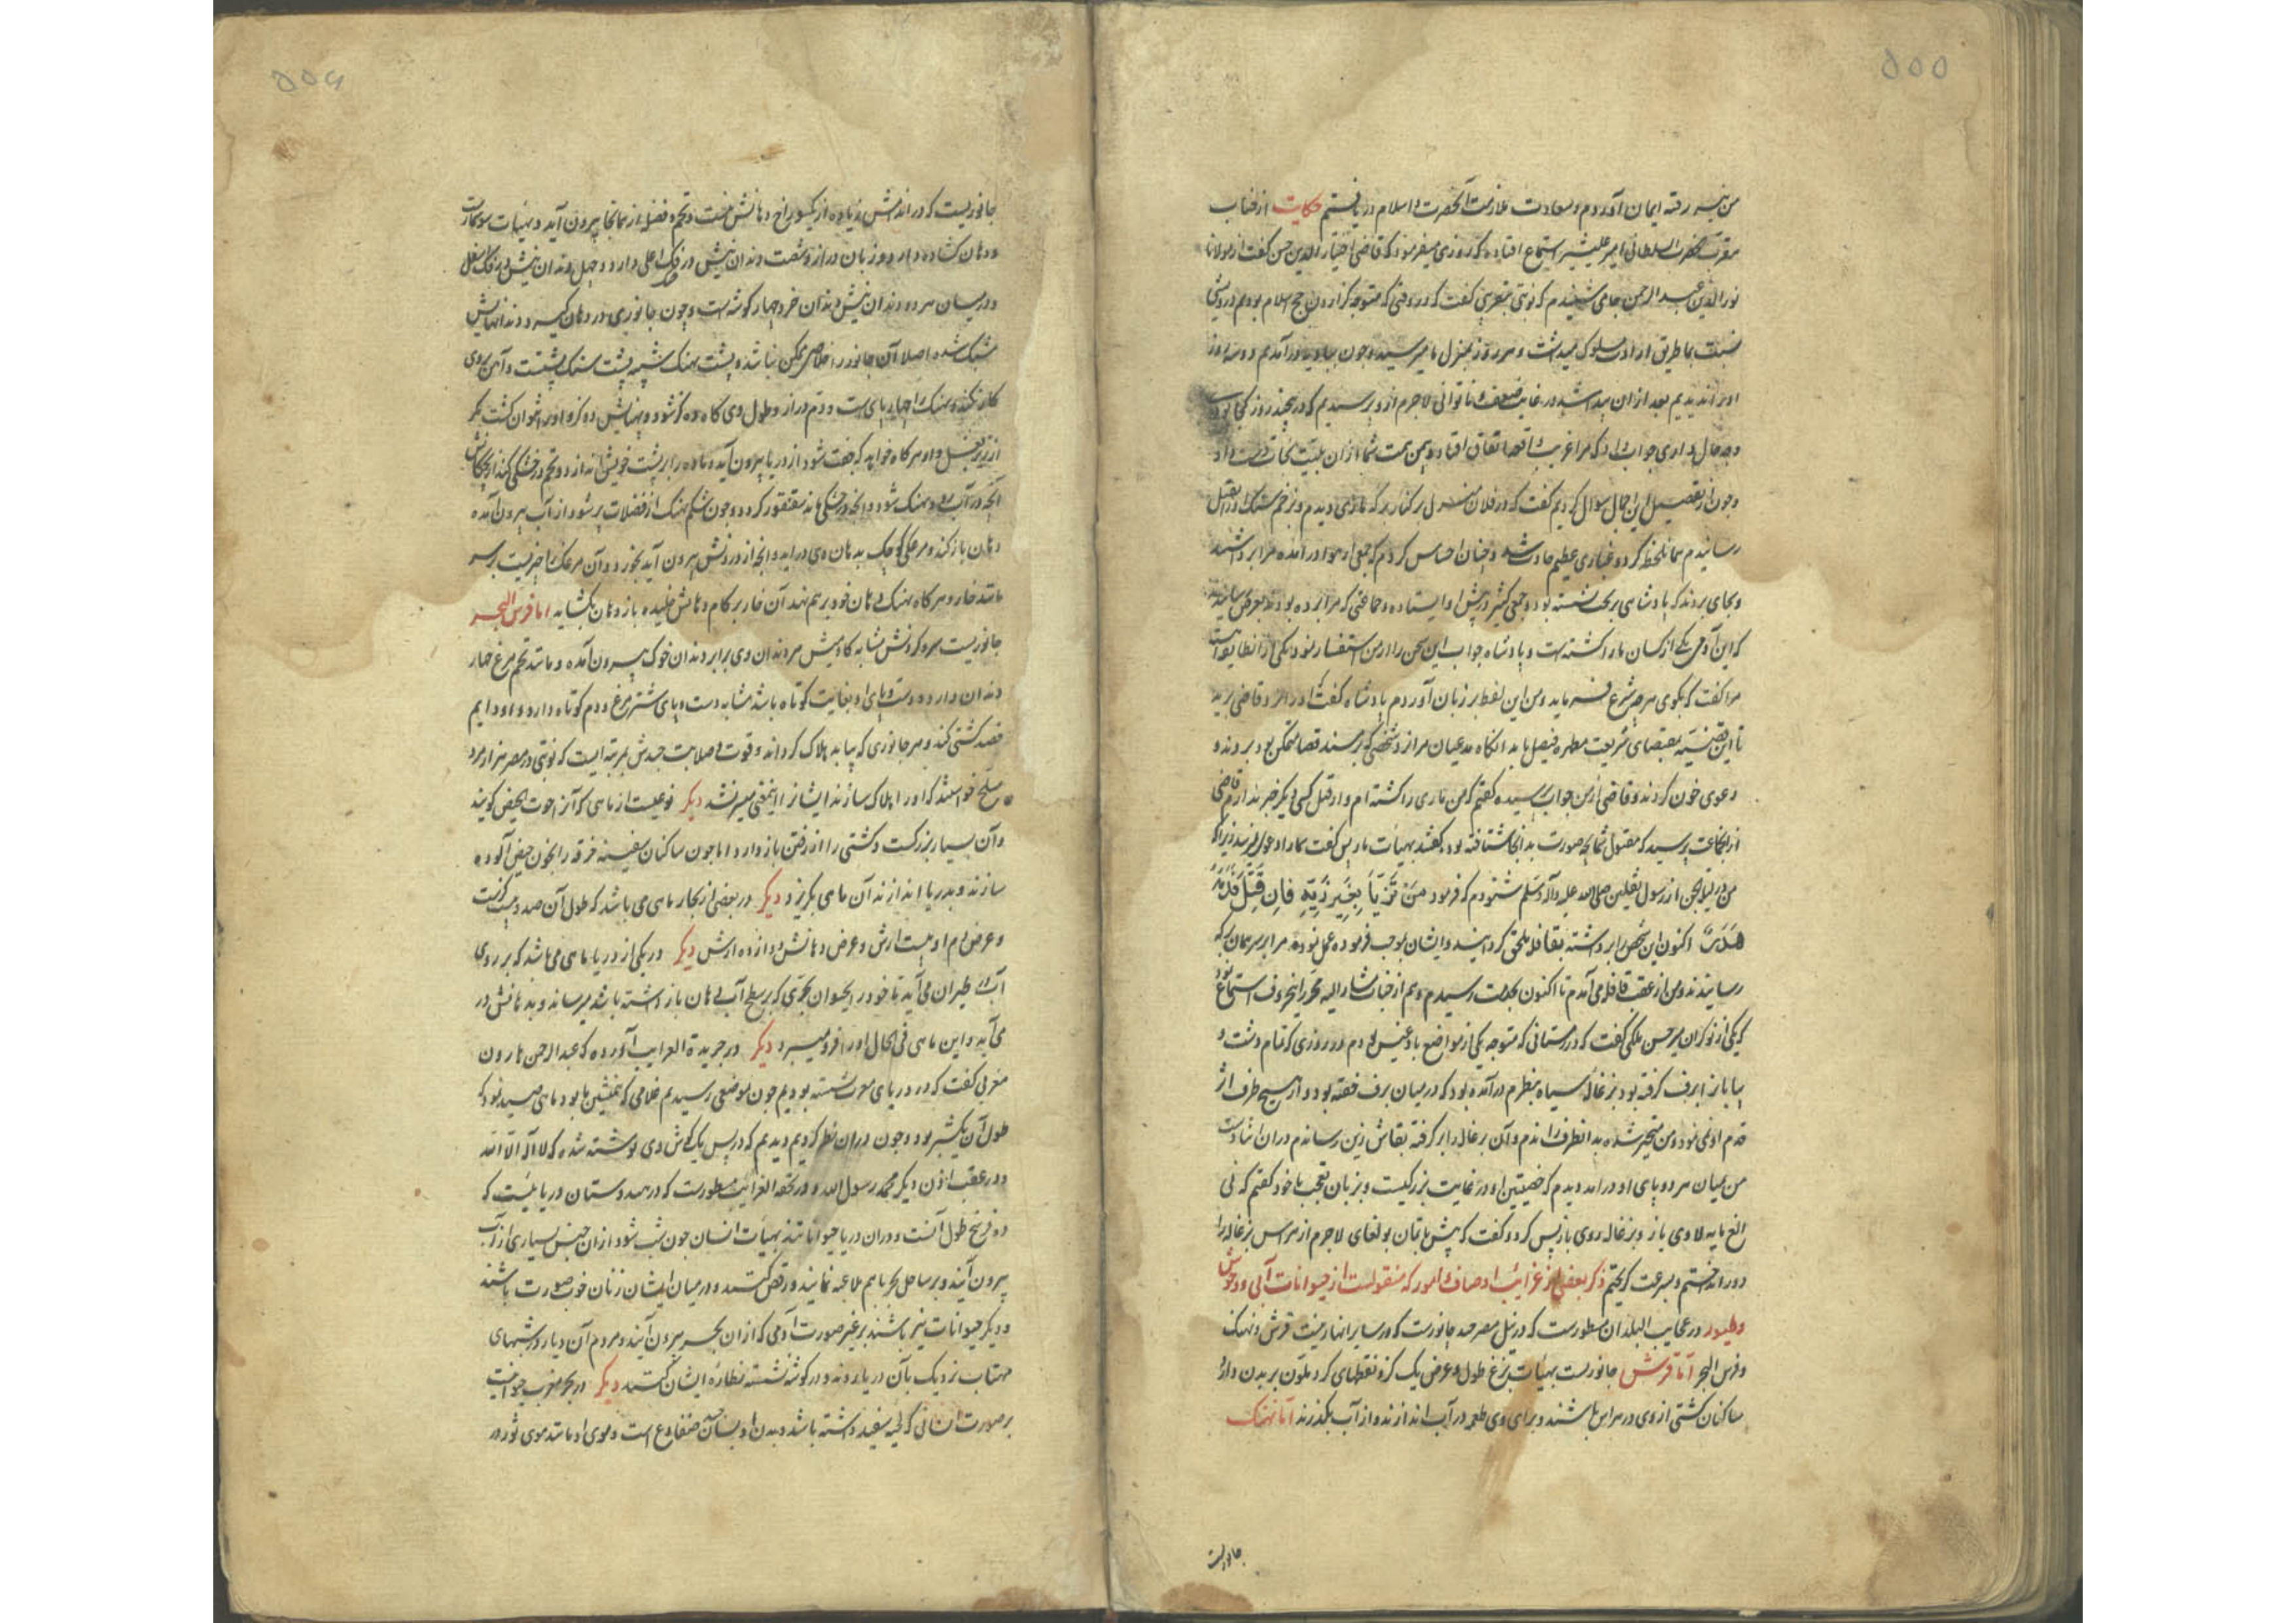 ۵۵۵
من نیز رفته ایمان آوردم و سعادت ملازمت آنحضرت و اسلام دریافتم حکایت از جناب
مقرب حضرت السلطانی امیر علیشیر استماع افتاده که روزی میفرمود که قاضی اختیار الدین حسن گفت از مولانا
نور الدین عبد الرحمن جامی شنیدم که نوبتی بتقریبی گفت که در وقتی که متوجه گزاردن حج اسلام بودم درویشی
نسبت بما طریق ارادت مسلوک میداشت و هر روز بمنزل ما میرسید و چون ببادیه درآمدیم دو سه روز
او را ندیدیم بعد از آن پیدا شد در غایت ضعف و ناتوانی لاجرم از و پرسیدیم که درین چند روز کجا بودی
و چه حال داری جواب داد که مرا غریب واقعه اتفاق افتاد و بیمن همت شما از آن بلیت نجات
و چون از تفصیل این اجمال سوال کردیم گفت که در فلان منزل بر کنار برکه ماری دیدم و بزخم سنگ او را بقتل
رسانیدم همان لحظه گرد و غباری عظیم حادث شد و چنان احساس کردم که جمعی از هوا درآمده مرا برداشتند
و بجای بردند که پادشاهی بر تخت نشسته بود و جمعی کثیر در پیش او ایستاده و جماعتی که مرا برده بودند بعرض رسانیدند
که این آدمی یکی از کسان ما را کشته است و پادشاه جواب این سخن را از من استفسار نمود یکی از آن طایفه آهسته
مرا گفت که بگوی هرچه شرع فرماید و من این لفظ بر زبان آوردم پادشاه گفت او را نزد قاضی برید
تا این قضیه بمقتضای شریعت مطهره فیصل یابد آنگاه مدعیان مرا نزد شخصی که بر مسند قضا متمکن بود بردند و
دعوی خون کردند و قاضی از من جواب پرسید گفتم که من ماری را کشته ام و از قتل کسی دیگر خبر ندارم قاضی
از آنجماعت پرسید که مقتول شما بچه صورت بدانجا شتافته بود گفتند بهیأت مار پس گفت شما را دعوی نمیرسد زیرا که
من در لیلة الجن از رسول ثقلین صلی الله علیه وآله وسلم شنودم که فرمود مَنْ تَزَيَّا بِغَيْرِ زِيِّهِ فَاِنْ قُتِلَ فَدَمُهُ
هَدَرٌ اکنون این شخص را برداشته بقافله ملحق گردانید و ایشان بموجب فرموده عمل نموده مرا بر سر همان برکه
رسانیدند و من از عقب قافله می آمدم تا اکنون بخدمت رسیدم و هم از جناب مشار الیه محرر این حروف استماع نمود
که یکی از نوکران میر حسن ملکی گفت که در زمستانی که متوجه یکی از مواضع بادغیس بودم در روزی که تمام دشت و
بیابان را برف گرفته بود بزغالهٔ سیاه بنظرم درآمده بود که در میان برف خفته بود و از هیچ طرف اثر
قدم او نمی نمود و من متحیر شده بدانطرف راندم و آن بزغاله را برگرفته بقاش زین رساندم در آن اثنا دست
من بمیان هر دو پای او درآمد دیدم که خصیتین او در غایت بزرگیست و بزبان تعجب با خود گفتم که نی
الغ مایه لاوی بار و بزغاله روی باز پس کرد و گفت که پیش باتمان بولغای لاجرم از هراس بزغاله را
دور انداختم و بسرعت گریختم ذکر بعضی از غرایب اوصاف و امور که منقولست از حیوانات آبی و وحوش
وطیور در عجایب البلدان مسطورست که در نیل مصر سه جانورست که در سایر انهار نیست قرش و نهنک
و فرس البحر اما قرش جانوریست بهیأت بزغ طول و عرض یک گز و نقطهای گرد ملون بر بدن دارد
ساکنان کشتی از وی در هراس باشند و برای وی طعمه در آب اندازند و از آب بگذرند اما نهنک
جانوریست
۵۵۶
جانوریست که در اندامش زیاده از یک سوراخ دهانش نیست و تخم و فضله از همانجا بیرون آید و بهیأت سوسمارست
و دهان کشاده دارد و زبان دراز و شصت دندان نیش در فک اعلی دارد و چهل دندان نیش در فک اسفل
و در میان هر دو دندان نیش دندان خرد چهار گوشه است و چون جانوری در دهان گیرد و دندانهایش
مشبک شده اصلا آن جانور را خلاص ممکن نباشد و پشت نهنک شبیه پشت سنک پشتست و آهن بروی
کار نکند و نهنک را چهار پای است و دم دراز و طول وی گاه ده گز شود و پهنایش دو گز و او را نتوان کشت مگر
از زیر بغل و او هر گاه خواهد که جفت شود از دریا بیرون آید و ماده را بر پشت خویش اندازد و تخم در خشکی کند از بچگانش
آنچه در آب رود نهنک شود و آنچه در خشکی ماند سقنقور گردد و چون شکم نهنک از فضلات پر شود از آب بیرون آمده
دهان باز کند و مرغکی کوچک بدهان وی درآید و آنچه از درونش بیرون آید بخورد و آن مرغک را چیزیست بر سر
مانند خار و هر گاه نهنک دهان خود بر هم نهد آن خار بر کام دهانش خلیده باز دهان بکشاید اما فرس البحر
جانوریست سر و گردنش مشابه گاومیش مر دندان وی برابر دندان خوک بیرون آمده و مانند تخم مرغ چهار
دندان دارد و دست و پای او بغایت کوتاه باشد مشابه دست و پای شتر مرغ و دم کوتاه دارد و او دایم
قصد کشتی کند و هر جانوری که بیابد هلاک گرداند و قوت و صلابت جسدش بمرتبه ایست که نوبتی در مصر هزار مرد
مسلح خواستند که او را هلاک سازند ایشانرا اینمعنی میسر نشد دیکر نوعیست از ماهی که آنرا حوت الحیض گویند
و آن بسیار بزرگست و کشتی را از رفتن باز دارد اما چون ساکنان سفینه خرقه را بخون حیض آلوده
سازند و بدریا اندازند آن ماهی بگریزد دیکر در بعضی از بحار ماهی می باشد که طول آن صد و بیست گزست
و عرض او بیست ارش و عرض دهانش دوازده ارش دیکر در یکی از دریاها ماهی می باشد که بر روی
آب طیران می آید تا خود را بحیوان بحری که بر سطح آب دهان باز داشته باشد میرساند و بدهانش در
می آید و این ماهی فی الحال او را فرو میبرد دیکر در جریدة العرایب آورده که عبد الرحمن هارون
مغربی گفت که در دریای مغرب نشسته بودیم چون بموضعی رسیدیم غلامی که همنشین ما بود ماهی صید نمود که
طول آن یک شبر بود و چون در آن نظر کردیم دیدیم که در پس یک گوش وی نوشته شده که لا اله الا الله
و در عقب اذن دیکر محمد رسول الله و در تحفة الغرایب مسطورست که در هندوستان دریائیست که
ده فرسخ طول آنست و در آن دریا حیوانات‌اند بهیأت انسان چون شب شود از آن جنس بسیاری از آب
بیرون آیند و بر ساحل بحر با هم ملاعبه نمایند و رقص کنند و در میان ایشان زنان خوب صورت باشند
و دیکر حیوانات نیز باشند بر غیر صورت آدمی که از آن بحر بیرون آیند و مردم آن دیار در شبهای
مهتاب نزدیک بآن دریا روند و در گوشه نشسته نظارهٔ ایشان کنند دیکر در بحر مغرب حیوانیست
بر صورت انسانی که لحیه سفید داشته باشد و بدن او بسان ضفادع است و موی او مانند موی ثور